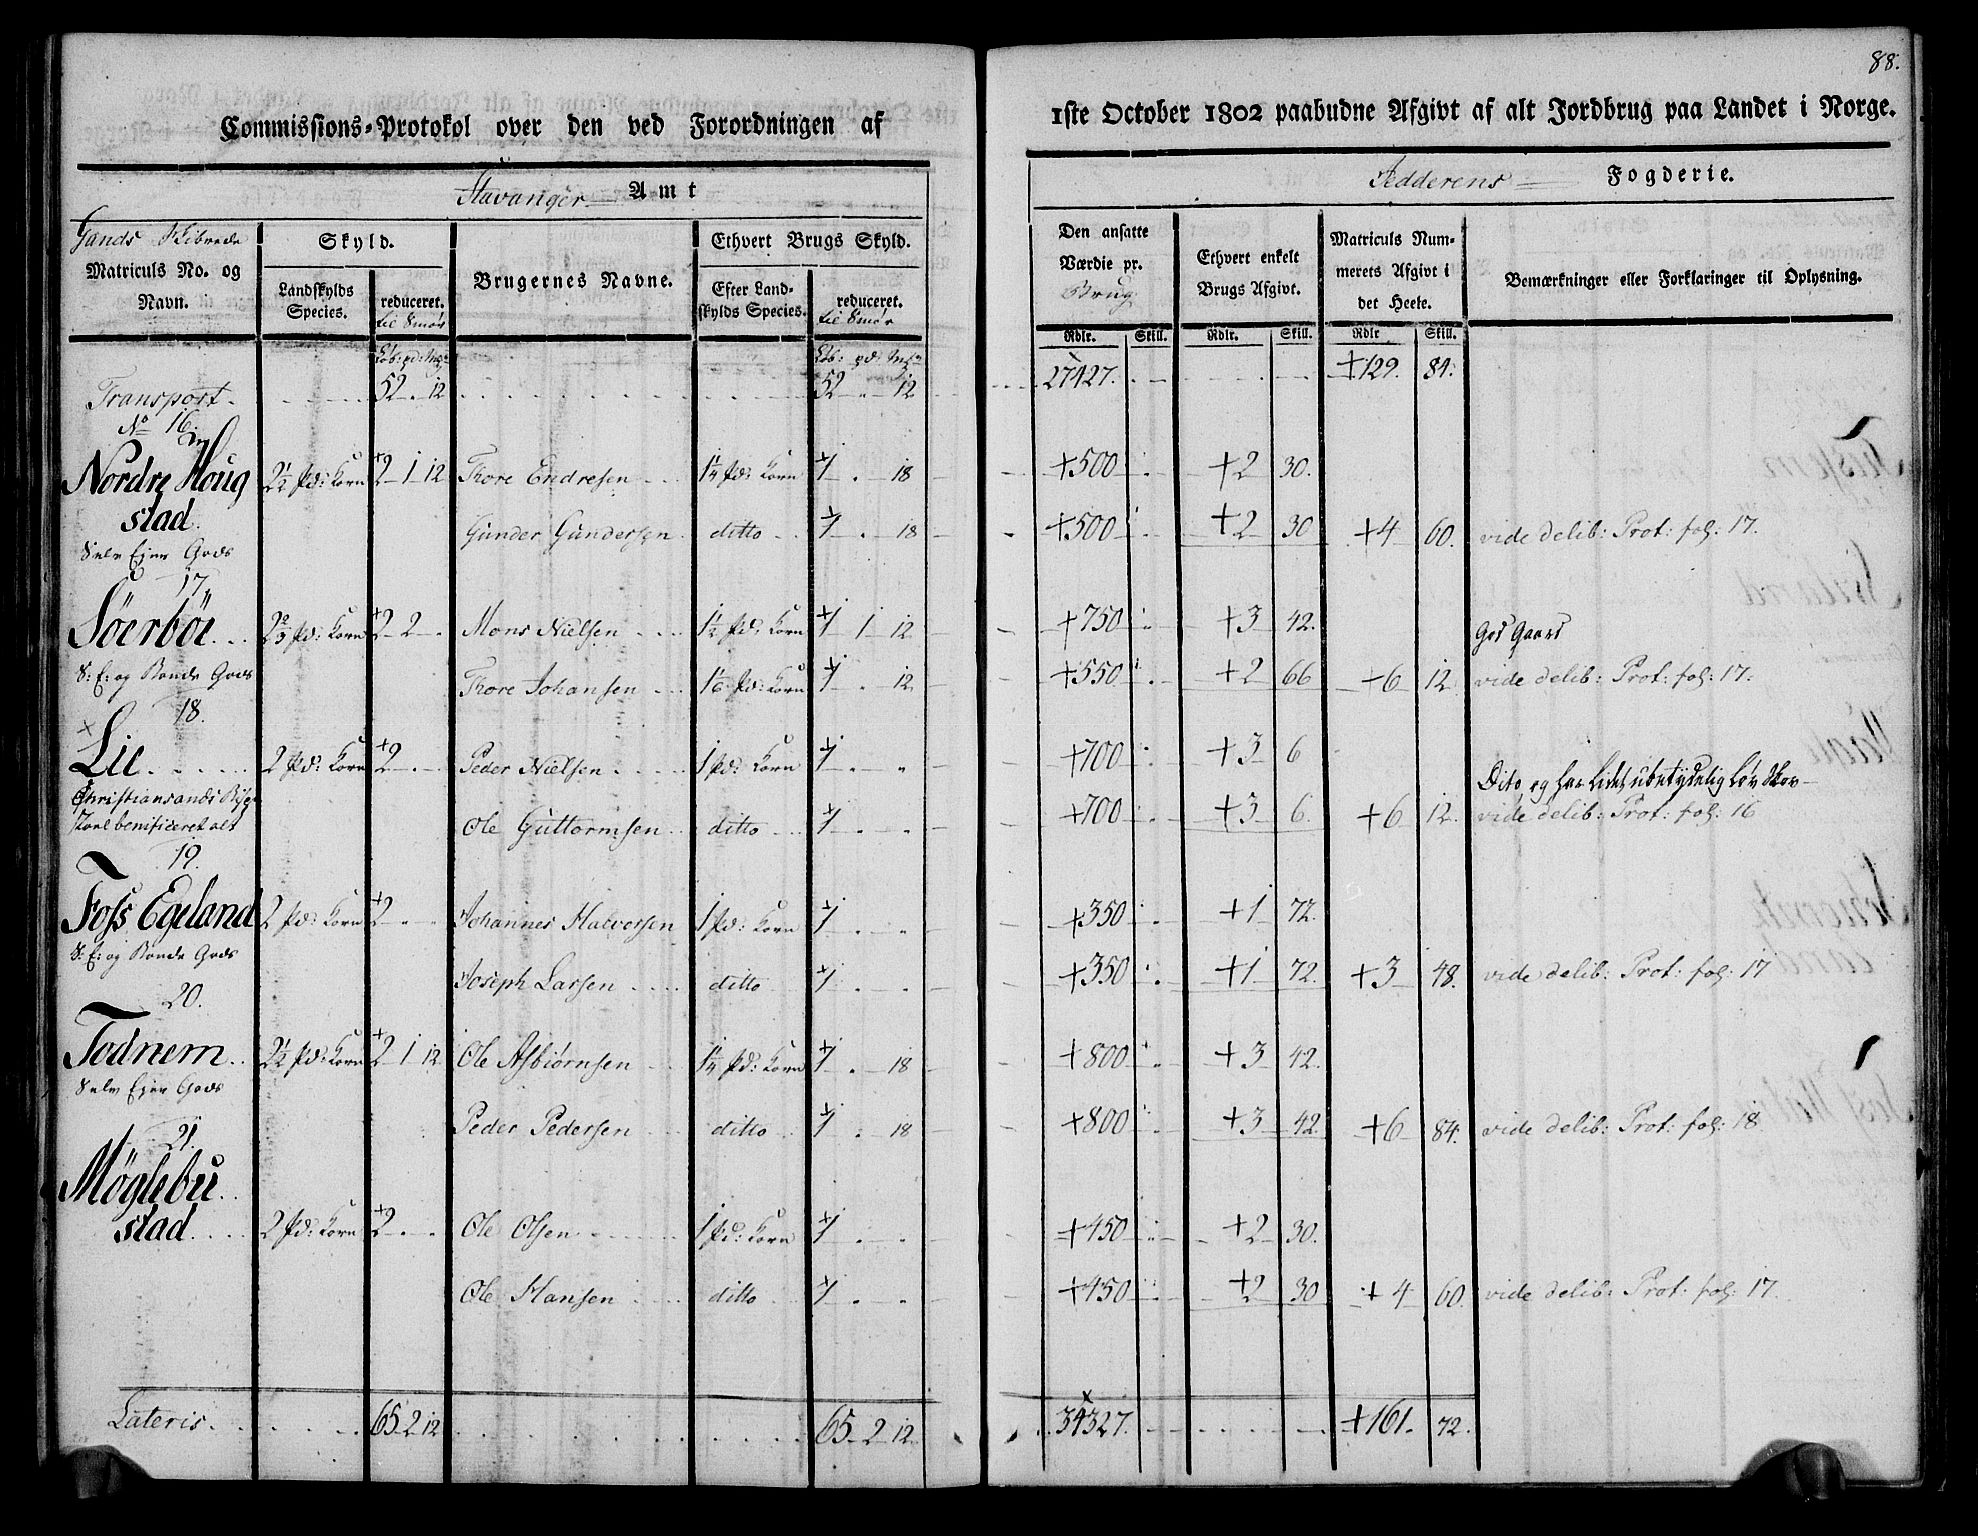 88.
Commissions-Protokol over den ved Forordningen af
1ste October 1802 paabudne Afgivt af alt Jordbrug paa Landet i Norge.
Stavanger Amt
Jedderens Fogderie.
Gands Skibrede
Matriculs No. og Navn.
Skyld.
Landskylds Species.
reduceret. til Smør
Brugernes Navne.
Ethvert Brugs Skyld.
Efter Landskylds Species.
reduceret. til Smør
Den ansatte Værdie pr. Brug
Ethvert enkelt Brugs Afgivt.
Matriculs Nummerets Afgivt i det Heele.
Bemærkninger eller Forklaringer til Oplysning.
Rdlr. Skill. Rdlr. Skill. Rdlr Skill.
Løb: pd: Mk Løb: pd: Mk
Transport. 52 . 12 52 . 12 27427. +129. 84.
No 16.
Nordre Houg 2½ Pd: Korn +2 1 12 Thore Endresen 1¼ Pd: Korn +1 . 18 +500 +2 30.
stad. Gunder Gundersen ditto +1 . 18 +500 +2 30 +4 60. vide delib: Prot: fol: 17.
Selv Ejer Gods
17.
Söerböe 2⅔ Pd: Korn +2 2 . Mons Nielsen 1½ Pd: Korn +1 1 12 +750 +3 42. God Gaard
S: E: og Bonde Gods Thore Johansen 1⅙ Pd: Korn +1 . 12 +550 +2 66 +6 12 vide delib: Prot: fol: 17.
18.
× Lie 2 Pd: Korn +2 Peder Nielsen 1 Pd: Korn +1 . . +700 +3 6
Dito og har lidet ubetydelig Løv Skov
Christiansands Bispe
stoel benificeret alt Ole Guttormsen ditto +1 . . +700 +3 6. +6 12. vide delib: Prot: fol: 16
19.
Foss Egeland 2 Pd: Korn +2 Johannes Halvorsen 1 Pd: Korn +1 . . +350 +1 72.
S: E: og Bonde Gods Joseph Larsen ditto +1 . . +350 +1 72 +3 48. vide delib: Prot: fol: 17
20.
Todnem 2½ Pd: Korn +2 1 12 Ole Asbiørnsen 1¼ Pd: Korn +1 . 18 +800 +3 42.
Selv Ejer Gods
Peder Pedersen ditto +1 . 18 +800 +3 42 +6 84. vide delib: Prot: fol: 18
21.
Möglebu
stad 2 Pd: Korn +2 . . Ole Olsen 1 Pd: Korn +1 . . +450 +2 30.
Ole Hansen ditto +1 . . +450 +2 30 +4 60. vide delib: Prot: fol: 17.
Lateris 65 2 12 65 2 12 34327. +161. 72.